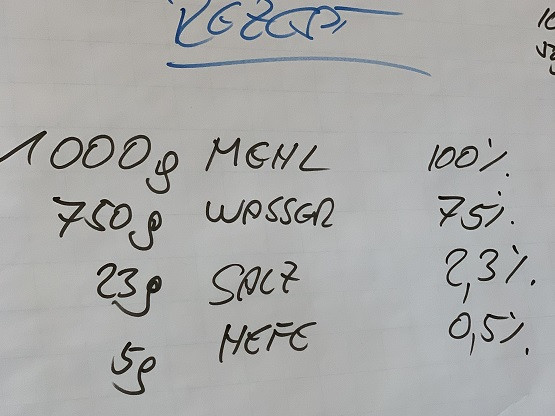 REZEPT
1000g MEHL 100%
750g WASSER 75%
23g SALZ 2,3%
5g HEFE 0,5%